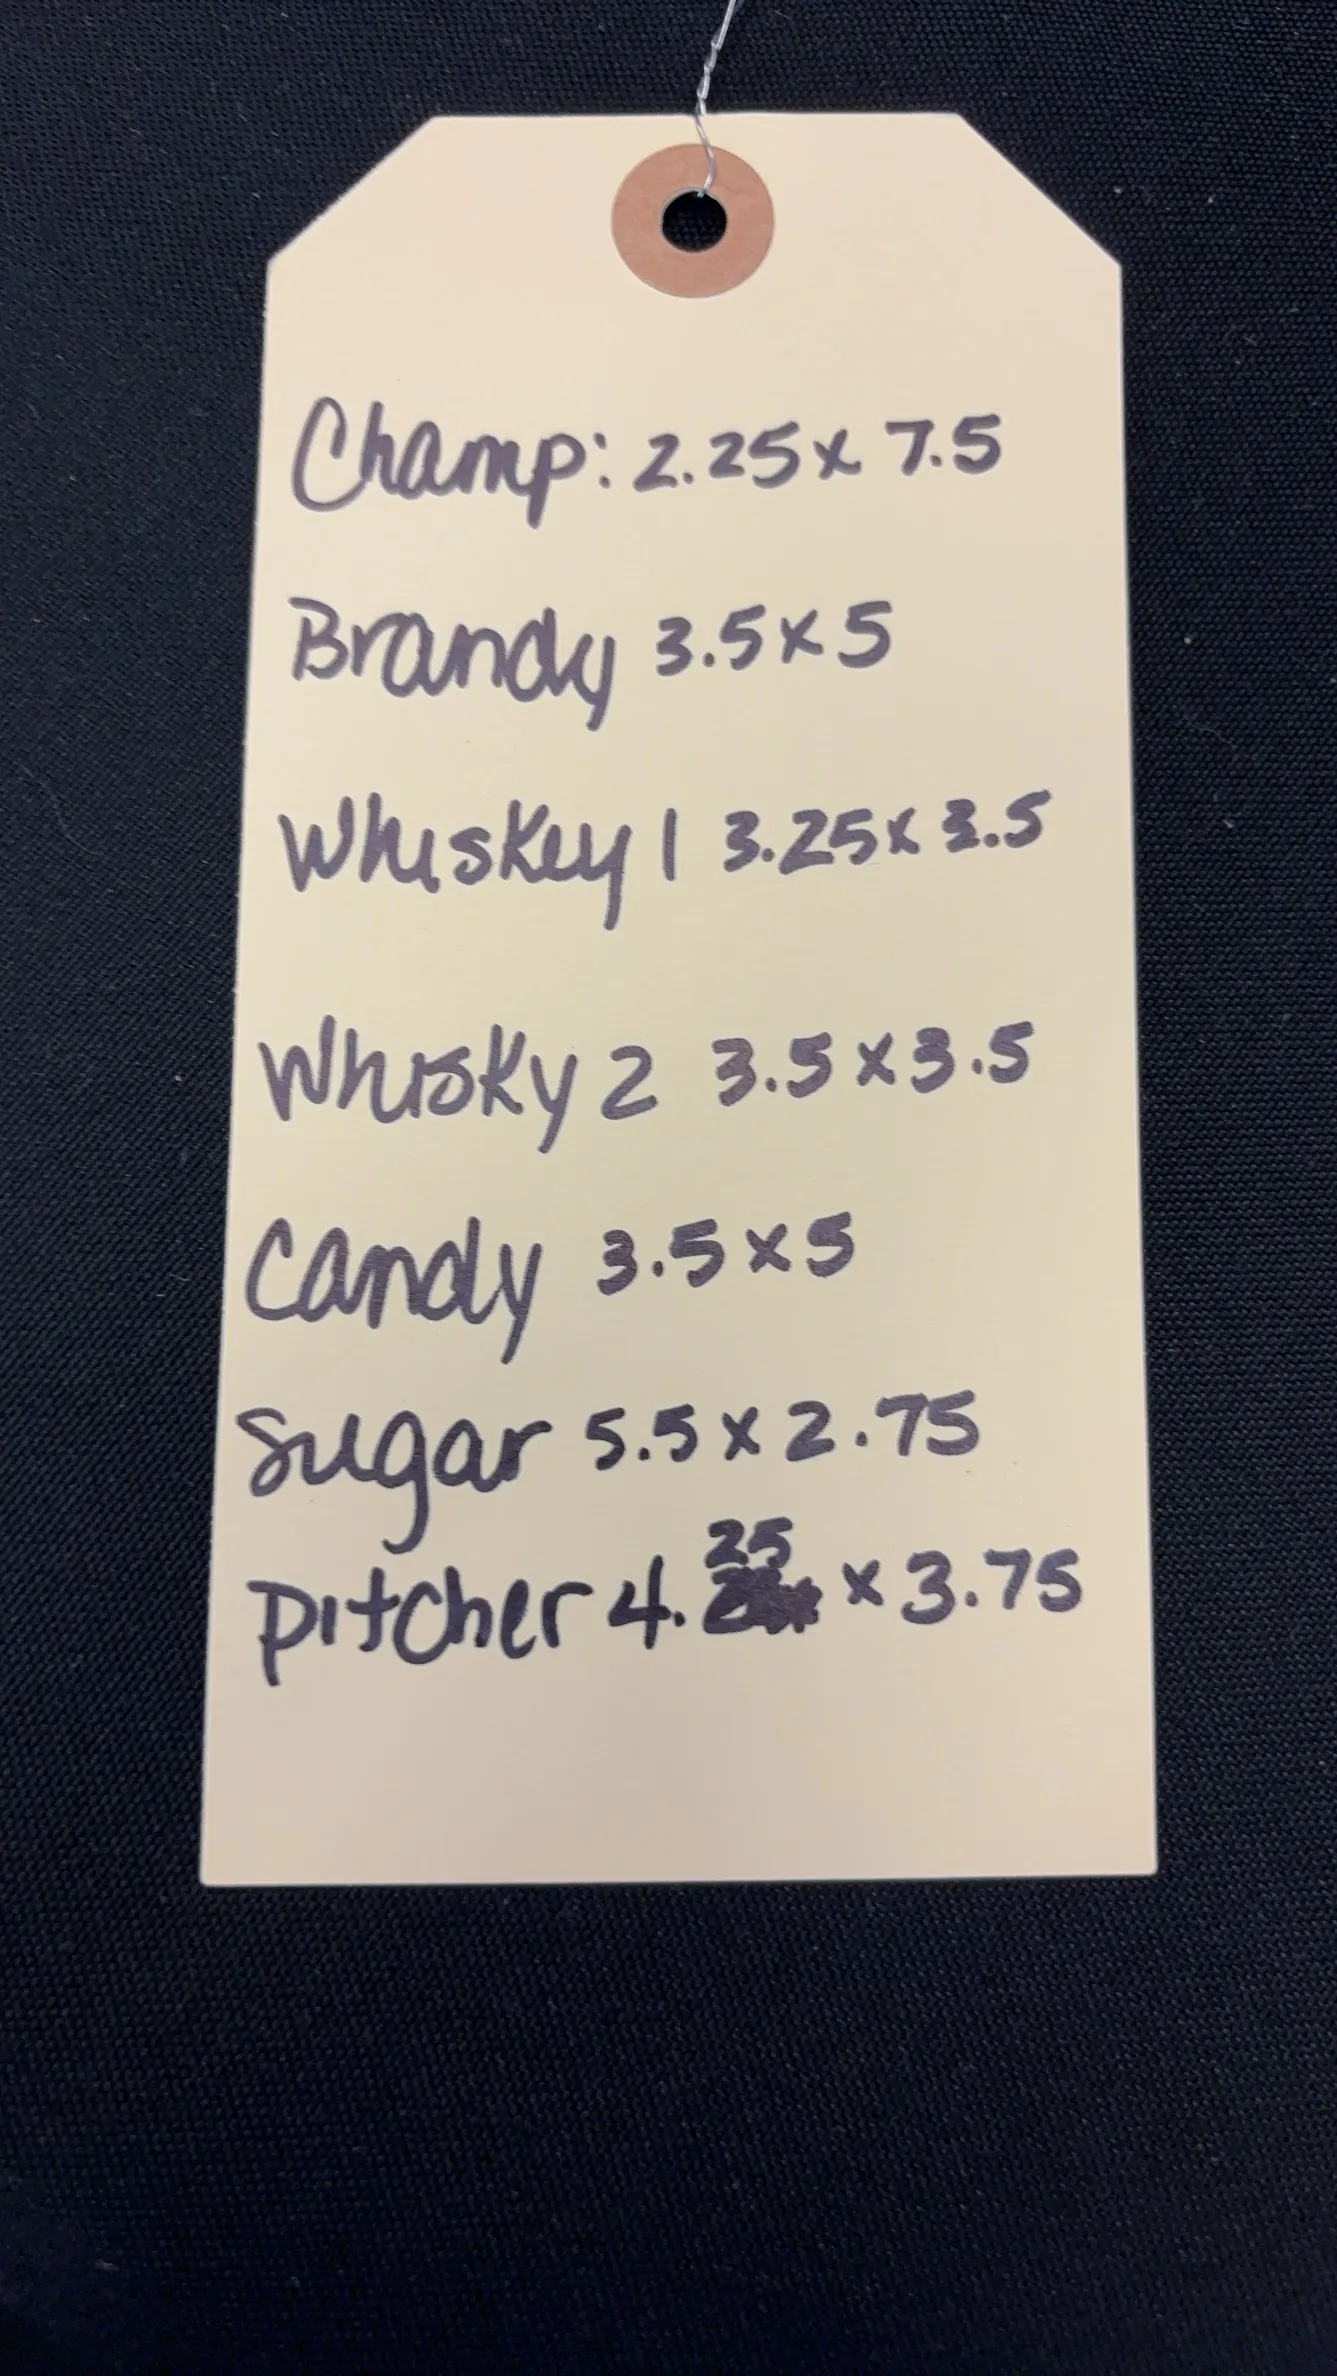 Champ: 2.25 x 7.5
Brandy 3.5 x 5
Whiskey 1 3.25 x 3.5
Whisky 2 3.5 x 3.5
Candy 3.5 x 5
Sugar 5.5 x 2.75
Pitcher 4.25 x 3.75